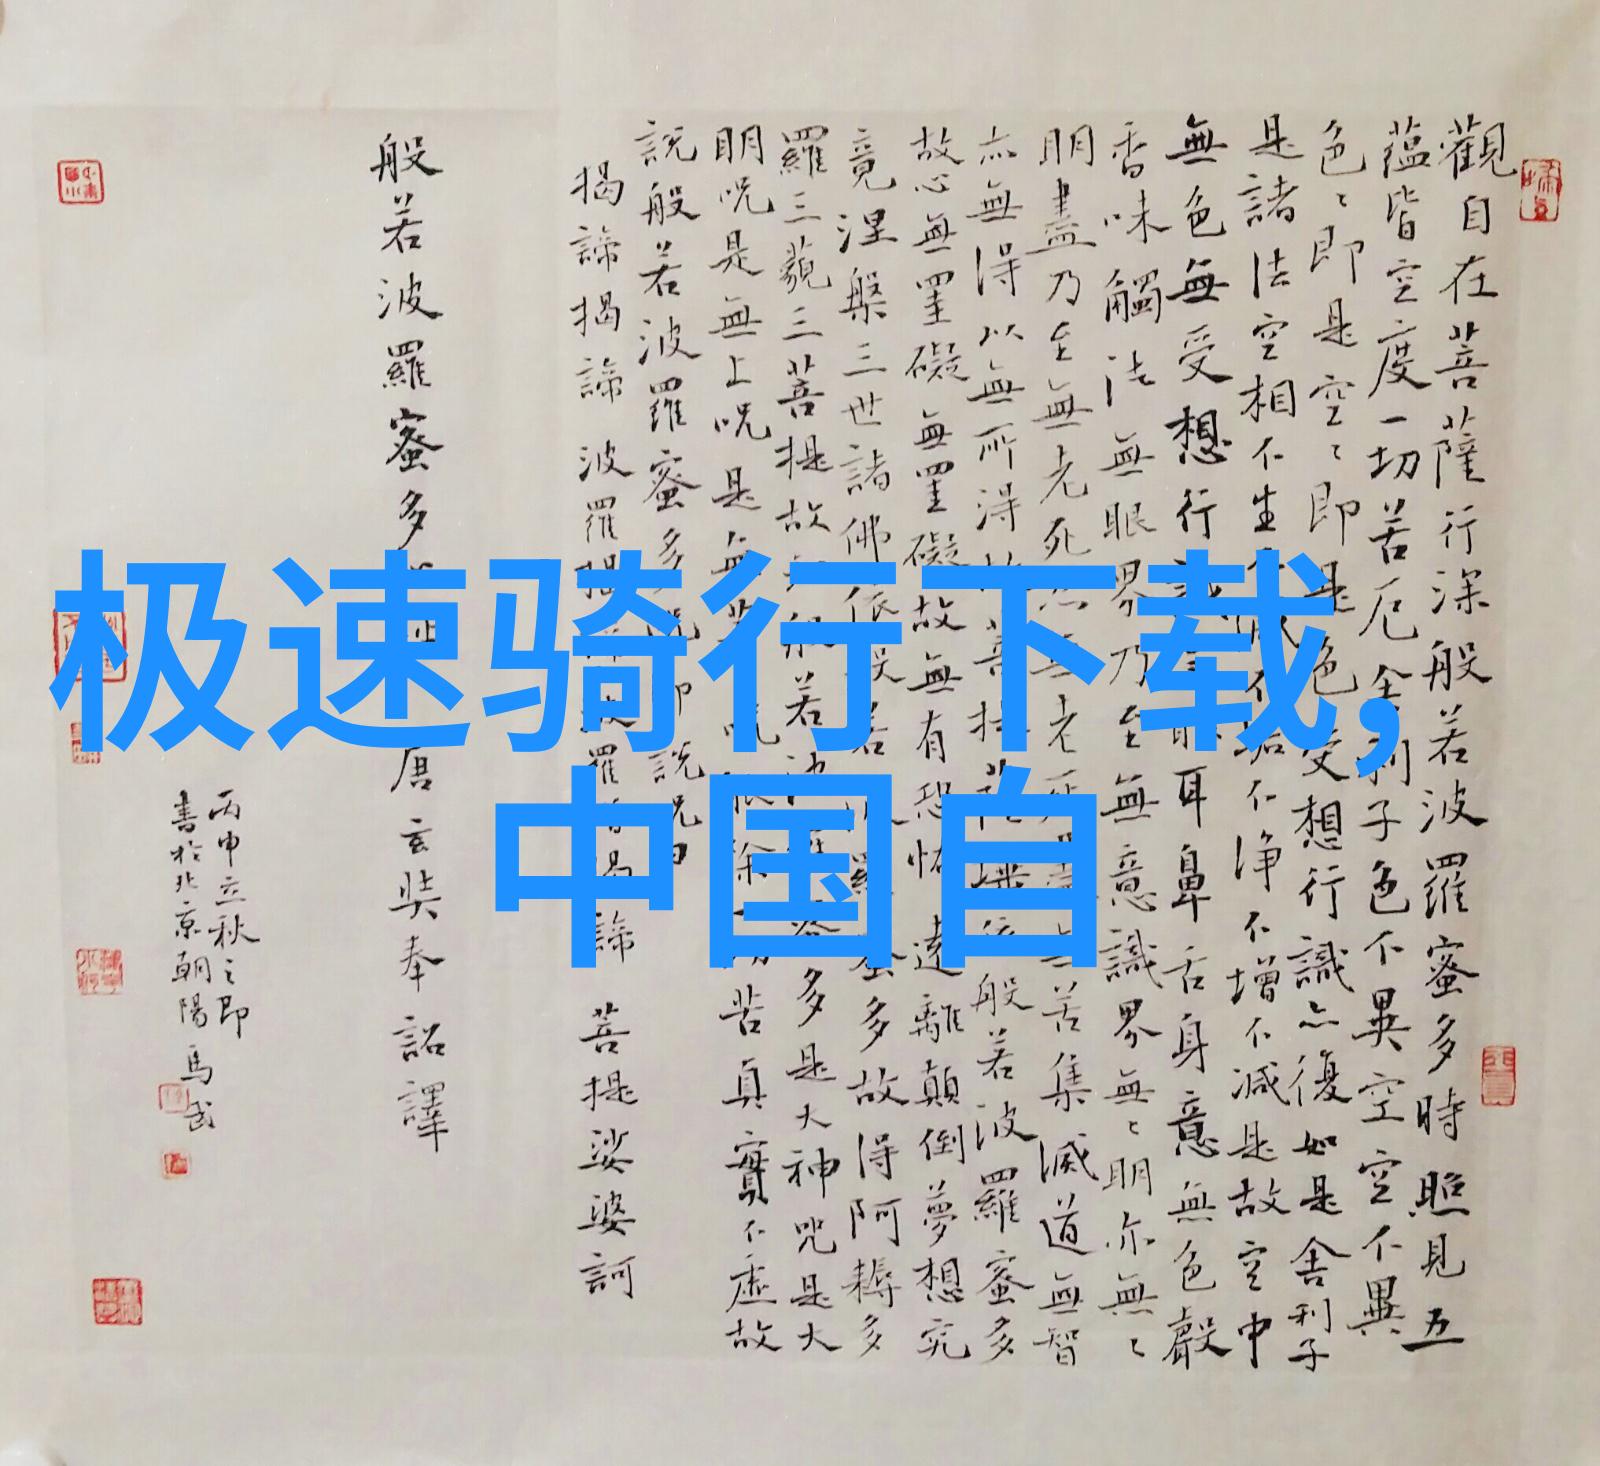 极速骑行下载,
中国自
觀自在菩薩行深般若波羅蜜多時照見五
蘊皆空度一切苦厄舍利子色不異空空不異
色〻即是空〻即是色受想行識亦復如是舍利子
是諸法空相不生滅不垢不净不增不減是故空中
無色無受想行識眼耳鼻舌身意無色聲
香味觸法無眼界乃至無意識界無〻明亦無〻
明盡乃至無老死亦無老死盡無苦集滅道無智
亦無得以無所得故菩提薩埵依般若波羅蜜多
故心無罣礙無罣礙故無有恐怖遠離顛倒夢想究
竟涅槃三世諸佛依般若波羅蜜多故得阿耨多
羅三藐三菩提故知般若波羅蜜多是大神咒是大
明呪是無上呪是無等呪能除切苦真實不虛故
說般若波羅蜜多呪即說呪曰
揭諦揭諦 波羅揭諦波羅僧揭諦 菩提娑婆訶
般若波羅蜜多心經 唐玄奘奉詔譯
丙申立秋之即
書於北京朝陽 馬武